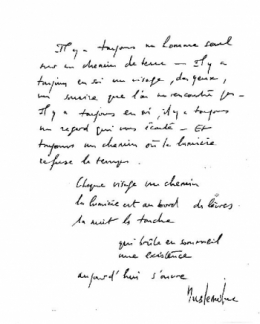 Il y a toujours un homme seul
sur un chemin de terre — Il y a
toujours en soi un visage, des yeux,
un sourire que l'on ne rencontre pas —
Il y a toujours en soi, il y a toujours
un regard qui vous écoute — Et
toujours un chemin où la lumière
refuse le temps.
Chaque visage un chemin
la lumière est au bord des lèvres
la nuit la touche
qui brûle en sommeil
une existence
aujourd'hui s'ouvre